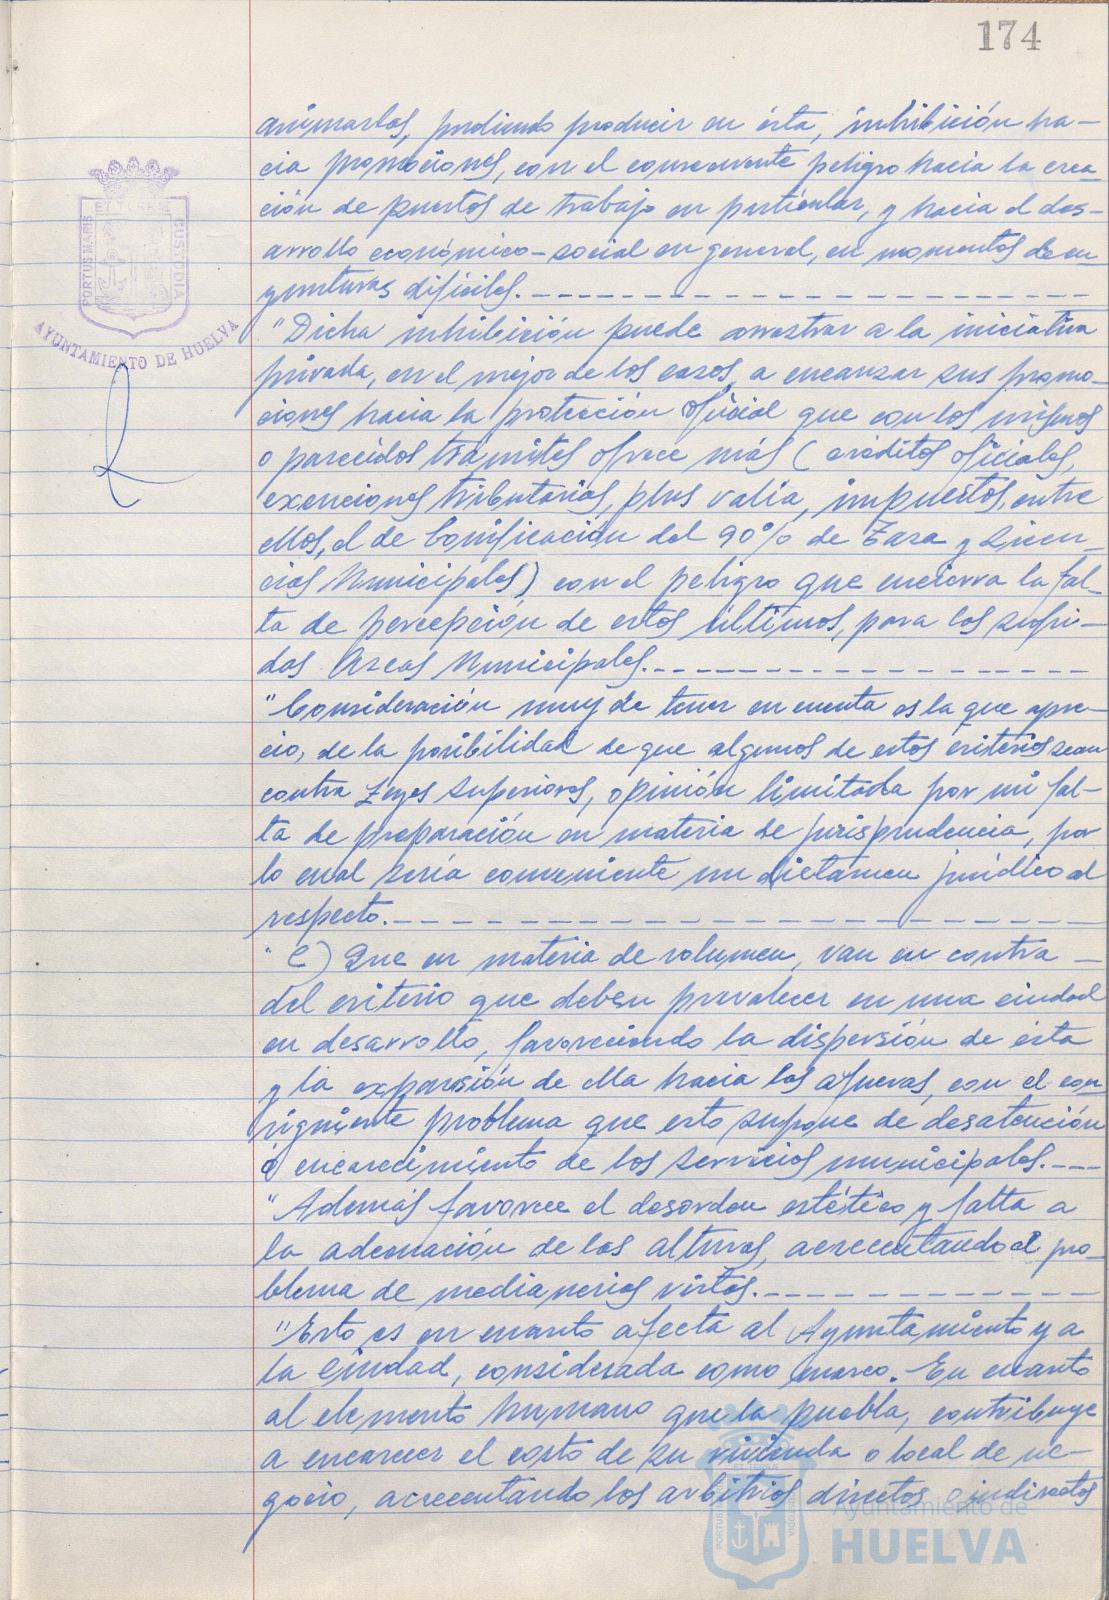 174
animarlas, pudiendo producir en ésta, inhibición ha-
cia promociones, con el consecuente peligro hacia la crea
ción de puestos de trabajo en particular, y hacia el des-
arrollo económico-social en general, en momentos de co
yunturas difíciles.
"Dicha inhibición puede arrastrar a la iniciativa
privada, en el mejor de los casos, a encauzar sus promo-
ciones hacia la protección oficial que con los mismos
o parecidos trámites ofrece más (créditos oficiales,
exenciones tributarias, plus valía, impuestos, entre
ellos, el de bonificación del 90% de Tasa y Licen-
cias Municipales) con el peligro que encierra la fal-
ta de percepción de estos últimos, para las sufri-
das Arcas Municipales.
"Consideración muy de tener en cuenta es la que apre-
cio, de la posibilidad de que algunos de estos criterios sean
contra Leyes superiores, opinión limitada por mi fal-
ta de preparación en materia de jurisprudencia, por
lo cual sería conveniente un dictamen jurídico al
respecto.
"C) Que en materia de volumen, van en contra
del criterio que deben prevalecer en una ciudad
en desarrollo, favoreciendo la dispersión de ésta
y la expansión de ella hacia las afueras, con el con
siguiente problema que esto supone de desatención
ó encarecimiento de los servicios municipales.
"Además favorece el desorden estético y falta a
la adecuación de las alturas, acrecentando el pro-
blema de medianerías vistas.
"Esto es en cuanto afecta al Ayuntamiento y a
la Ciudad, considerada como marco. En cuanto
al elemento humano que la puebla, contribuye
a encarecer el costo de su vivienda o local de ne-
gocio, acrecentando los arbitrios directos o indirectos
PORTUS MARIS
ET TERRE
CUSTODIA
AYUNTAMIENTO DE HUELVA
Ayuntamiento de
HUELVA